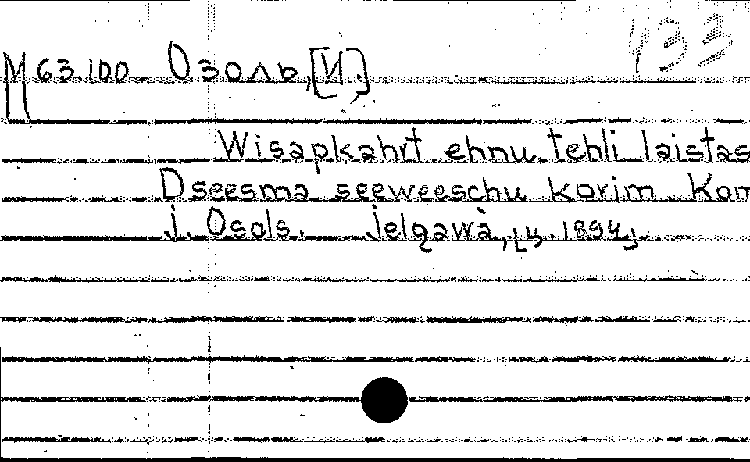 433
М 63.100 Озоль, [И.]
Wisapkahrt ehnu tehli laistas
Dseesma seeweeschu korim Kom
J. Osols. Jelgawà, [ц. 1894]